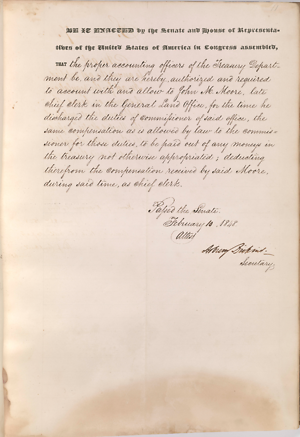 BE IT ENACTED by the Senate and House of Representa-
tives of the United States of America in Congress assembled,
THAT the proper accounting officers of the Treasury Depart-
ment be, and they are hereby, authorized and required
to account with and allow to John M. Moore, late
chief clerk in the General Land Office, for the time he
discharged the duties of commissioner of said office, the
same compensation as is allowed by law to the commis-
sioner for those duties, to be paid out of any moneys in
the treasury not otherwise appropriated; deducting
therefrom the compensation received by said Moore,
during said time, as chief clerk.
Passed the Senate
February 10, 1848.
Attest
Asbury Dickins
Secretary.